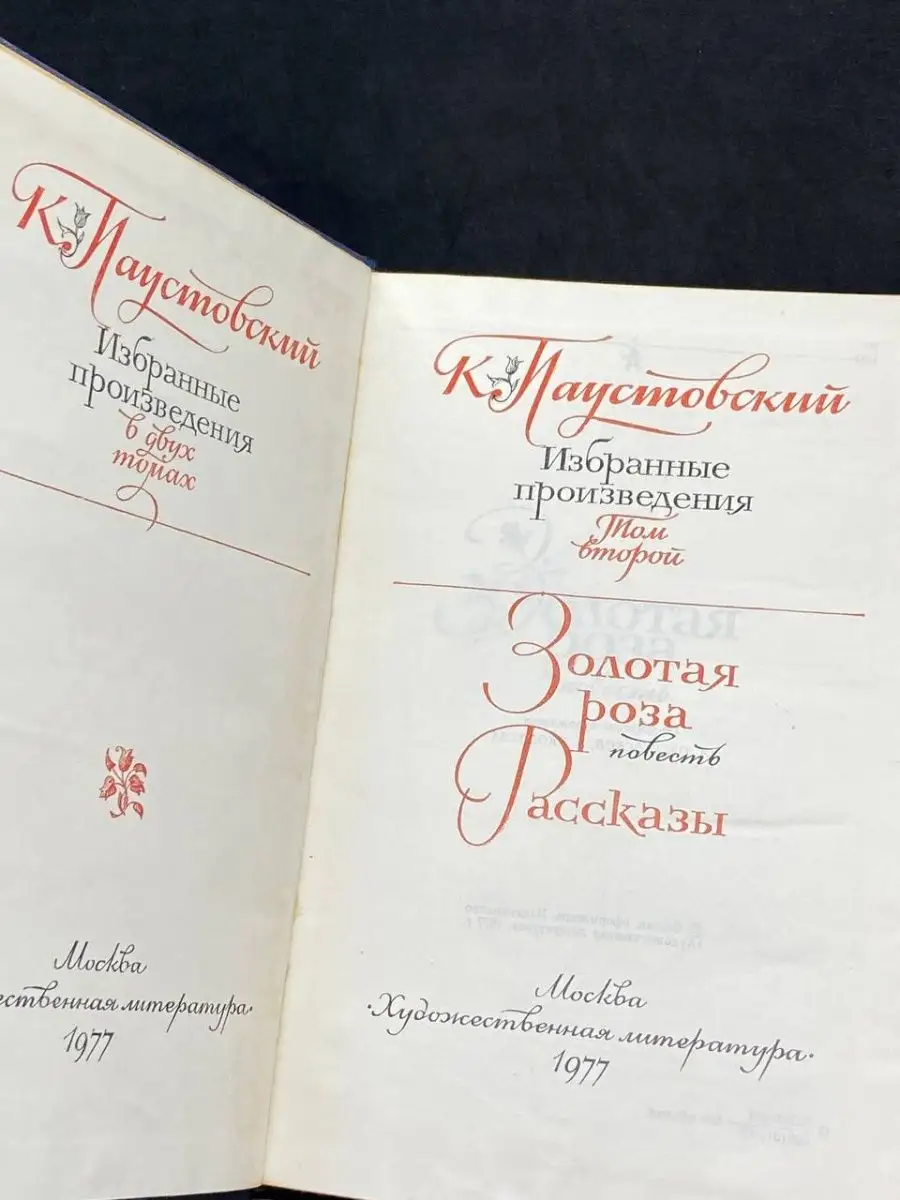 К. Паустовский
Избранные
произведения
в двух
томах
Москва
1977
К. Паустовский
Избранные
произведения
Том
второй
Золотая
роза
повесть
Рассказы
Москва
«Художественная литература»
1977